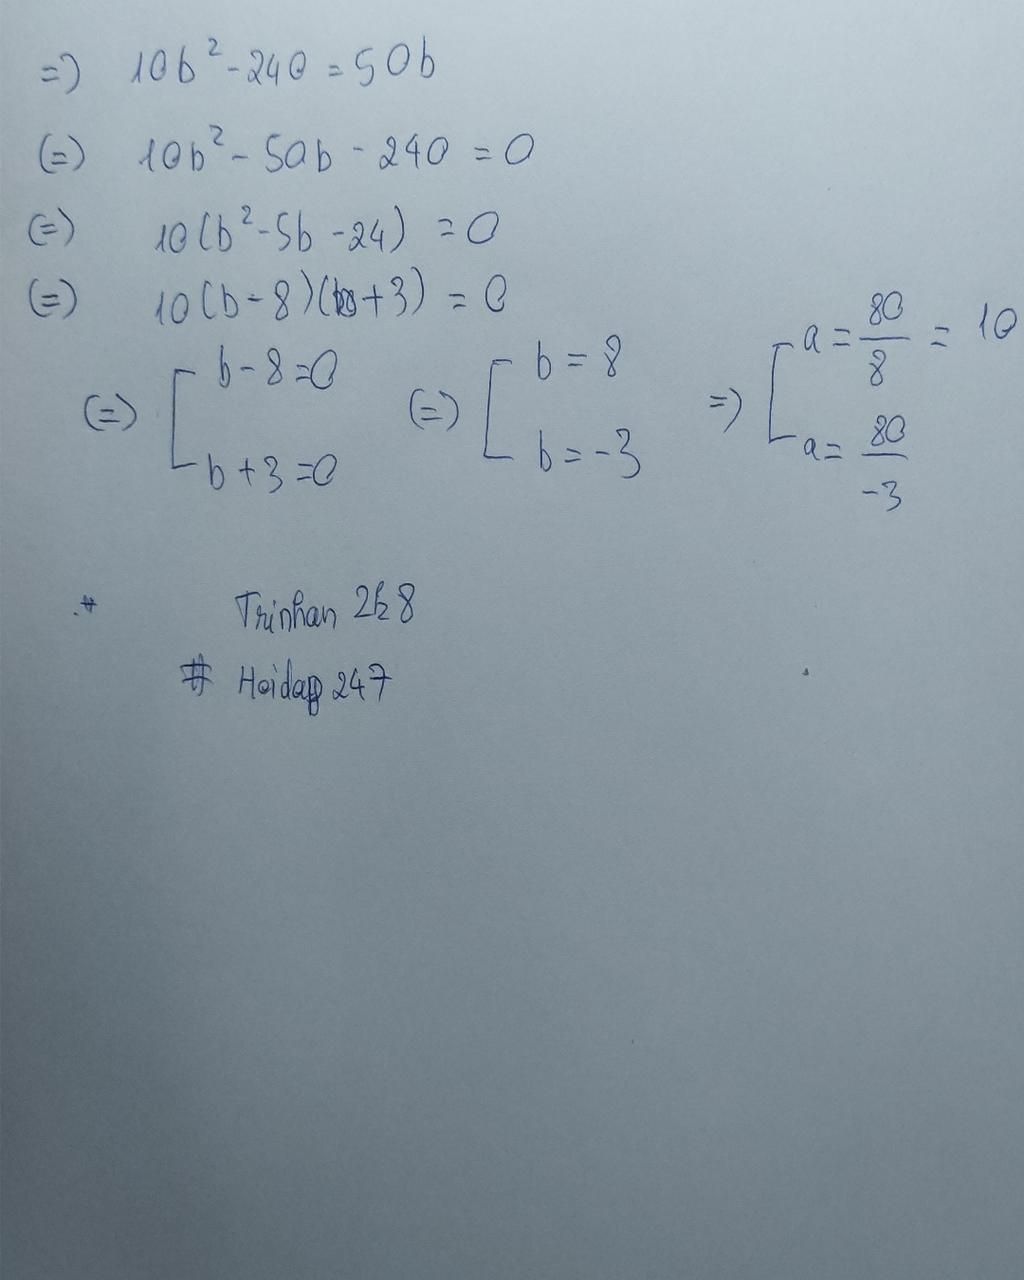 =) 10b² - 240 = 50b
(=) 10b² - 50b - 240 = 0
(=) 10(b² - 5b - 24) = 0
(=) 10(b - 8)(b + 3) = 0
(=) [ b - 8 = 0 (=) [ b = 8 =) [ a = 80/8 = 10
b + 3 = 0 b = -3 a = 80/-3
* Trinhan 2k8
# Hoidap 247